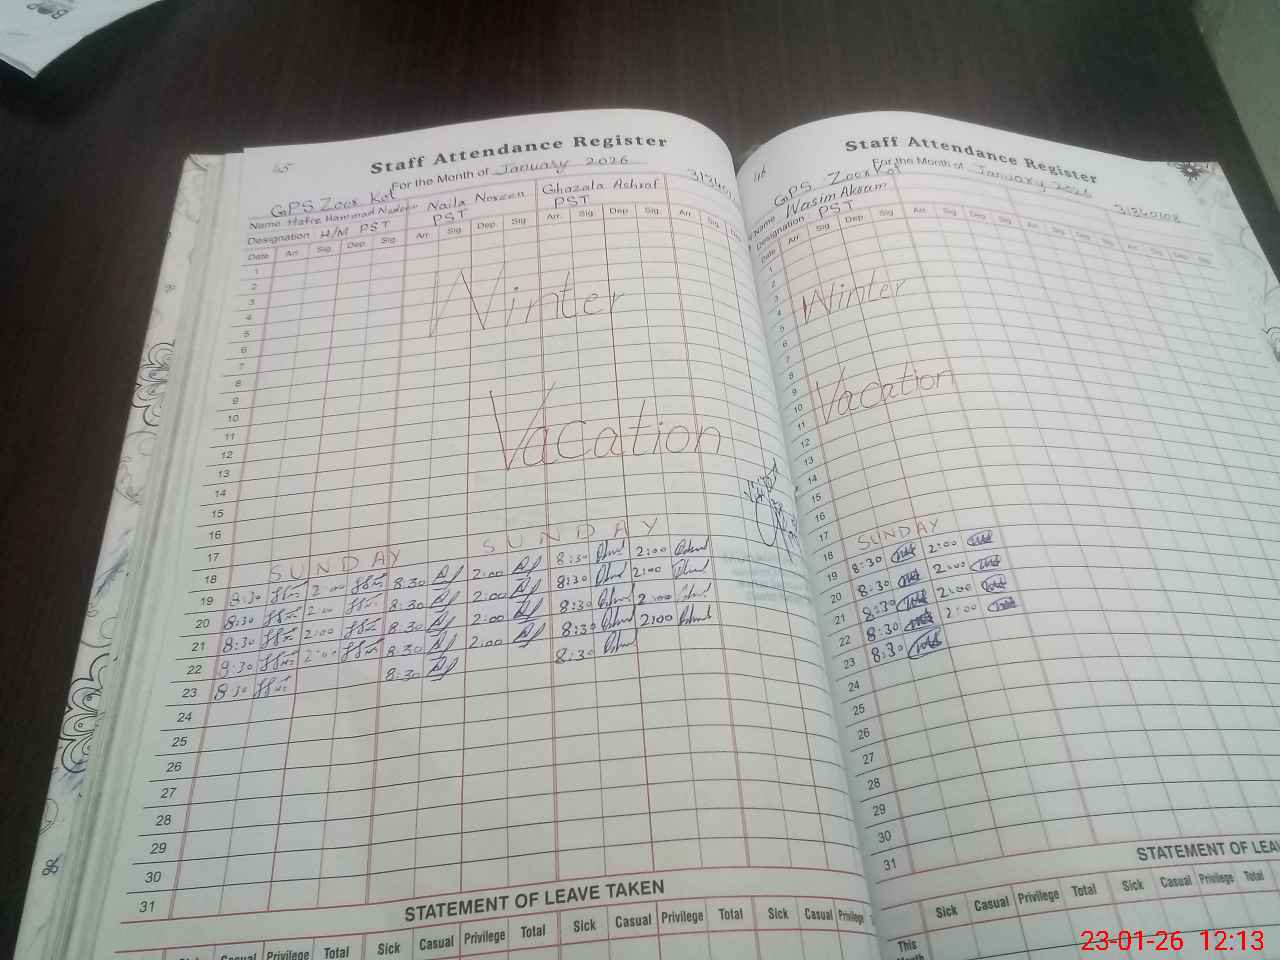 45
Staff Attendance Register
For the Month of January 2026
GPS Zoor Kot
Name Hafiz Hammad Nadeem Naila Noreen Ghazala Ashraf
Designation H/M PST PST PST
Date Arr. Sig. Dep. Sig. Arr. Sig. Dep. Sig. Arr. Sig. Dep. Sig. Arr. Sig.
1
2
3
4
5
6
7
8
9
10
11
12
13
14
15
16
17
Winter
Vacation
18 SUNDAY SUNDAY
19 8:30 2:00 8:30 2:00 8:30 2:00
20 8:30 2:00 8:30 2:00 8:30 2:00
21 8:30 2:00 8:30 2:00 8:30 2:00
22 8:30 2:00 8:30 2:00 8:30 2:00
23 8:30 8:30 8:30
24
25
26
27
28
29
30
31
STATEMENT OF LEAVE TAKEN
Sick Casual Privilege Total Sick Casual Privilege Total Sick Casual Privilege
46
Staff Attendance Register
For the Month of January 2026
GPS Zoor Kot
31340108
Name Wasim Akram
Designation PST
Date Arr. Sig. Dep. Sig. Arr. Sig. Dep. Sig. Arr. Sig. Dep. Sig.
1
2
3
4
5
6
7
8
9
10
11
12
13
14
15
16
17
Winter
Vacation
18 SUNDAY
19 8:30 2:00
20 8:30 2:00
21 8:30 2:00
22 8:30 2:00
23 8:30
24
25
26
27
28
29
30
31
STATEMENT OF LEAV
Sick Casual Privilege Total Sick Casual Privilege Total
This
Month
23-01-26 12:13